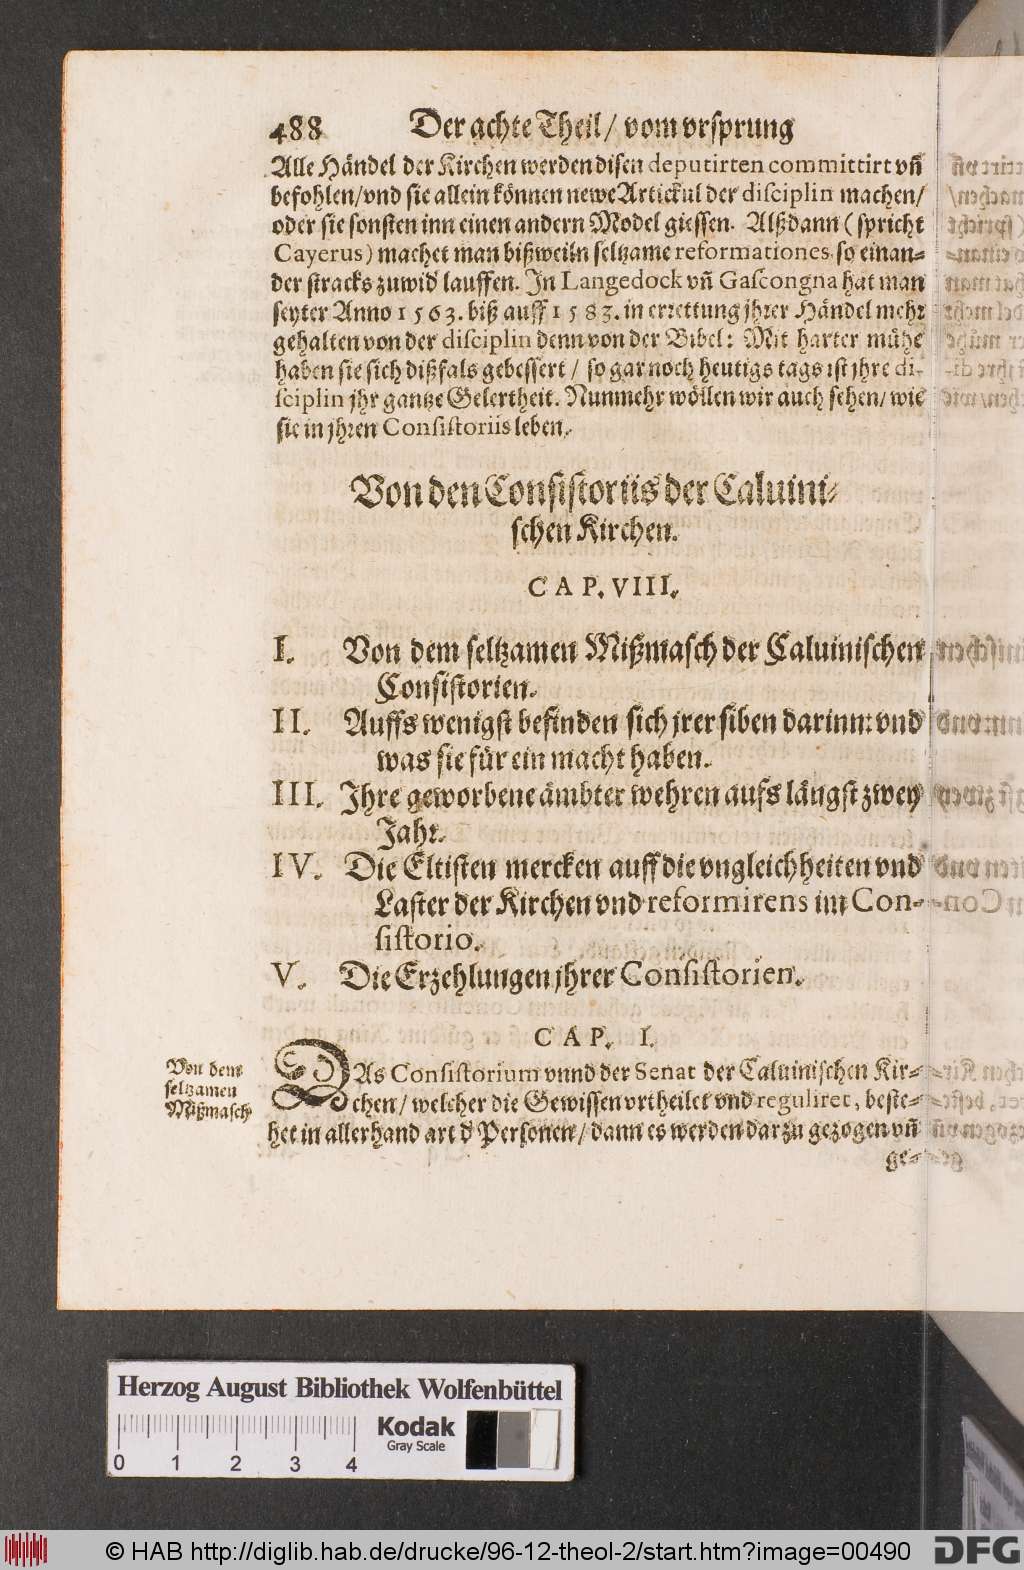 488 Der achte Theil / vom vrsprung
Alle Händel der Kirchen werden disen deputirten committirt vñ
befohlen / vnd sie allein können newe Artickul der disciplin machen /
oder sie sonsten inn einen andern Model giessen. Alßdann ( spricht
Cayerus ) machet man bißweiln seltzame reformationes so einan-
der stracks zuwid lauffen. In Langedock vñ Gascongna hat man
seyter Anno 1563. biß auff 1583. in errettung jhrer Händel mehr
gehalten von der disciplin denn von der Bibel: Mit harter mühe
haben sie sich dißfals gebessert / so gar noch heutigs tags ist jhre di-
sciplin jhr gantze Gelertheit. Nunmehr wöllen wir auch sehen / wie
sie in jhren Consistoriis leben.
Von den Consistoriis der Caluini-
schen Kirchen.
CAP. VIII.
I. Von dem seltzamen Mißmasch der Caluinischen
Consistorien.
II. Auffs wenigst befinden sich jrer siben darinn: vnd
was sie für ein macht haben.
III. Ihre geworbene ämbter wehren aufs längst zwey
Jahr.
IV. Die Eltisten mercken auff die vngleichheiten vnd
Laster der Kirchen vnd reformirens im Con-
sistorio.
V. Die Erzehlungen jhrer Consistorien.
CAP. I.
Von dem
seltzamen
Mißmasch
DAs Consistorium vnnd der Senat der Caluinischen Kir-
chen / welcher die Gewissen vrtheilet vnd reguliret, beste-
het in allerhand art d Personen / dann es werden darzu gezogen vñ
ge-
Herzog August Bibliothek Wolfenbüttel
Kodak
Gray Scale
0 1 2 3 4
© HAB http://diglib.hab.de/drucke/96-12-theol-2/start.htm?image=00490
DFG